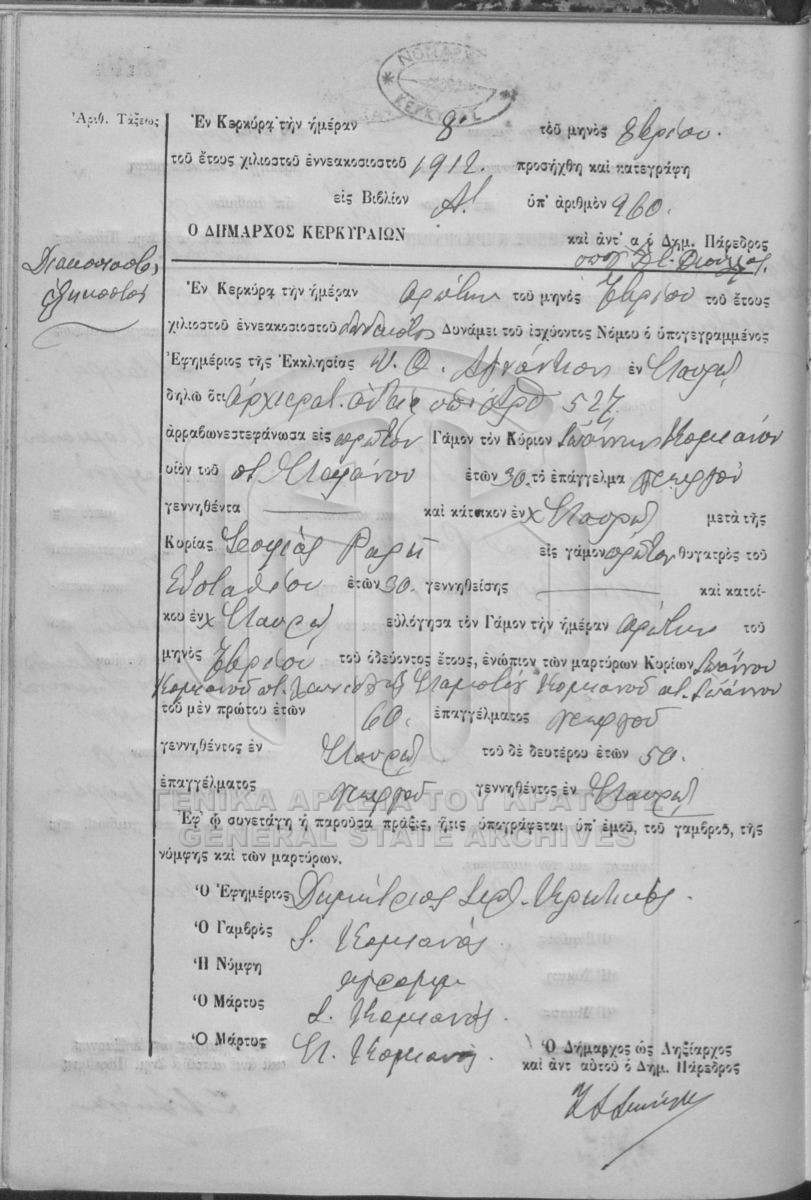 ΝΟΜΑΡΧ
ΚΕΡΚΥΡΑΣ
Ἀριθ. Τάξεως
Ἐν Κερκύρᾳ τὴν ἡμέραν 8 τοῦ μηνὸς
τοῦ ἔτους χιλιοστοῦ ἐννεακοσιοστοῦ 1912. προσήχθη καὶ κατεγράφη
εἰς Βιβλίον Α' ὑπ' ἀριθμὸν 960.
Ο ΔΗΜΑΡΧΟΣ ΚΕΡΚΥΡΑΙΩΝ
καὶ ἀντ' α ὁ Δημ. Πάρεδρος
Διακοσιοστὸς
Ἐν Κερκύρᾳ τὴν ἡμέραν πρώτην τοῦ μηνὸς τοῦ ἔτους
χιλιοστοῦ ἐννεακοσιοστοῦ δωδεκάτου Δυνάμει τοῦ ἰσχύοντος Νόμου ὁ ὑπογεγραμμένος
Ἐφημέριος τῆς Ἐκκλησίας Υ. Θ. ἐν Σταυρῷ
δηλῶ ὅτι ἀρχιερατ. ἀδείᾳ ὑπ' ἀριθ 527
ἀρραβωνεστεφάνωσα εἰς πρῶτον Γάμον τὸν Κύριον Ἰωάννην Κομιανὸν
υἱὸν τοῦ ποτ. Στεφάνου ἐτῶν 30. τὸ ἐπάγγελμα γεωργοῦ
γεννηθέντα καὶ κάτοικον ἐν Σταυρῷ μετὰ τῆς
Κυρίας Σοφίας εἰς γάμον πρῶτον θυγατρὸς τοῦ
Εὐσταθίου ἐτῶν 30. γεννηθείσης καὶ κατοί-
κου ἐν Σταυρῷ εὐλόγησα τὸν Γάμον τὴν ἡμέραν πρώτην τοῦ
μηνὸς τοῦ ὁδεύοντος ἔτους, ἐνώπιον τῶν μαρτύρων Κυρίων
Κομιανοῦ ποτ. Κομιανοῦ ποτ. Ἰωάννου
τοῦ μὲν πρώτου ἐτῶν 60. ἐπαγγέλματος γεωργοῦ
γεννηθέντος ἐν Σταυρῷ τοῦ δὲ δευτέρου ἐτῶν 50.
ἐπαγγέλματος γεωργοῦ γεννηθέντος ἐν Σταυρῷ
ΓΕΝΙΚΑ ΑΡΧΕΙΑ ΤΟΥ ΚΡΑΤΟΥΣ
Ἐφ' ᾧ συνετάγη ἡ παροῦσα πρᾶξις, ἥτις ὑπογράφεται ὑπ' ἐμοῦ, τοῦ γαμβροῦ, τῆς
GENERAL STATE ARCHIVES
νύμφης καὶ τῶν μαρτύρων.
Ὁ Ἐφημέριος Δημήτριος
Ὁ Γαμβρὸς Ι. Κομιανός.
Ἡ Νύμφη ἀγράμμ
Ὁ Μάρτυς Ι. Κομιανός.
Ὁ Μάρτυς Στ. Κομιανός.
Ὁ Δήμαρχος ὡς Ληξίαρχος
καὶ ἀντ αὐτοῦ ὁ Δημ. Πάρεδρος